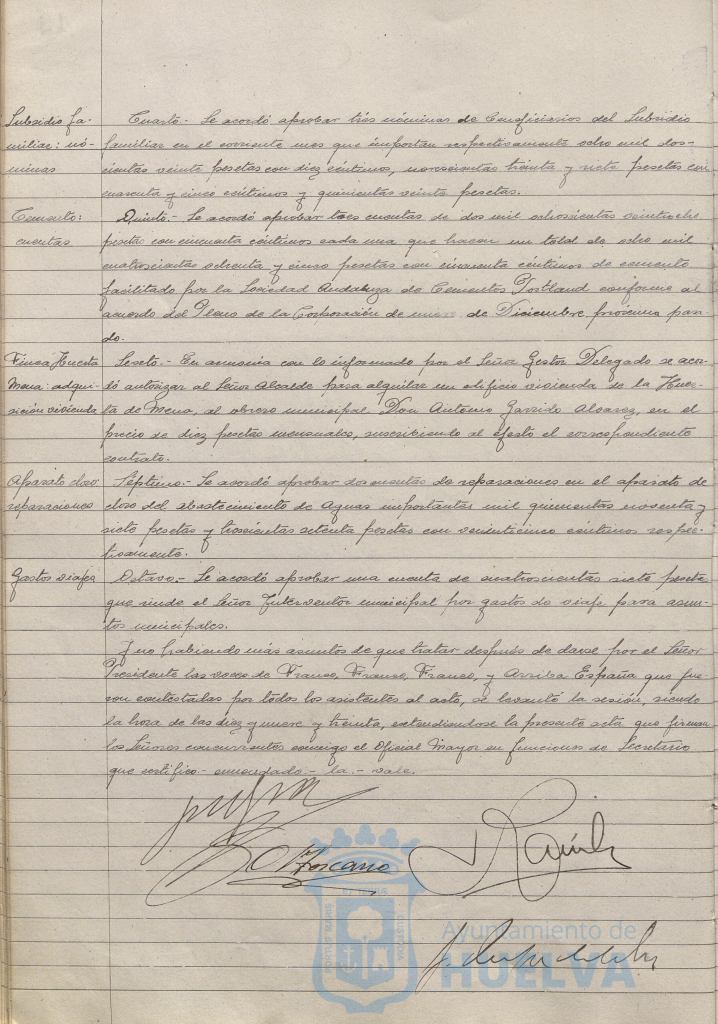 Subsidio fa-
miliar: nó-
minas
Cuarto.- Se acordó aprobar tres nóminas de Beneficiarios del Subsidio
familiar en el corriente mes que importan respectivamente ocho mil dos-
cientas veinte pesetas con diez céntimos, novecientas treinta y siete pesetas con
cuarenta y cinco céntimos y quinientas veinte pesetas.
Cemento:
cuentas
Quinto.- Se acordó aprobar tres cuentas de dos mil ochocientas veintiocho
pesetas con cincuenta céntimos cada una que hacen un total de ocho mil
cuatrocientas ochenta y cinco pesetas con cincuenta céntimos de cemento
facilitado por la Sociedad Andaluza de Cementos Portland conforme al
acuerdo del Pleno de la Corporación de nueve de Diciembre próximo pasa-
do.
Finca Huerta
Mena: adqui-
sición vivienda
Sexto.- En armonía con lo informado por el Señor Gestor Delegado se acor-
dó autorizar al Señor Alcalde para alquilar un edificio vivienda de la Huer-
ta de Mena, al obrero municipal Don Antonio Garrido Alvarez, en el
precio de diez pesetas mensuales, suscribiendo al efecto el correspondiente
contrato.
Aparato cloro
reparaciones
Séptimo.- Se acordó aprobar dos cuentas de reparaciones en el aparato de
cloro del abastecimiento de Aguas importantes mil quinientas noventa y
siete pesetas y trescientas setenta pesetas con veinticinco céntimos respec-
tivamente.
Gastos viajes
Octavo.- Se acordó aprobar una cuenta de cuatrocientas siete pesetas
que rinde el Señor Interventor municipal por gastos de viaje para asun-
tos municipales.
Y no habiendo más asuntos de que tratar después de darse por el Señor
Presidente las voces de Franco, Franco, Franco, y Arriba España que fue-
ron contestadas por todos los asistentes al acto, se levantó la sesión, siendo
la hora de las diez y nueve y treinta, extendiéndose la presente acta que firman
los Señores concurrentes conmigo el Oficial Mayor en funciones de Secretario
que certifico.- enmendado.- la.- vale.
Toscano
PORTUS MARIS
CUSTODIA
Ayuntamiento de
HUELVA